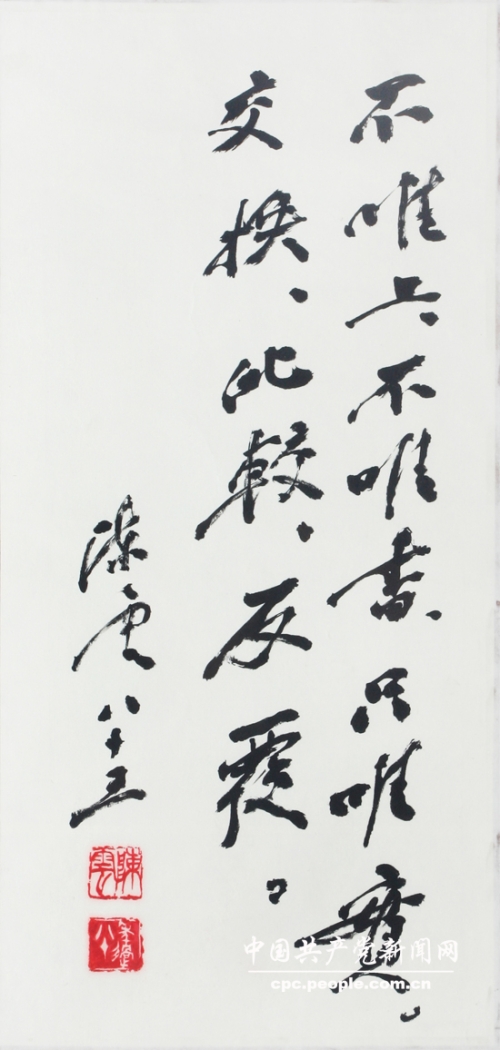 不唯上、不唯書、只唯實。
交换、比較、反覆。
陳雲八十三
陳雲
中国共产党新闻网
cpc.people.com.cn